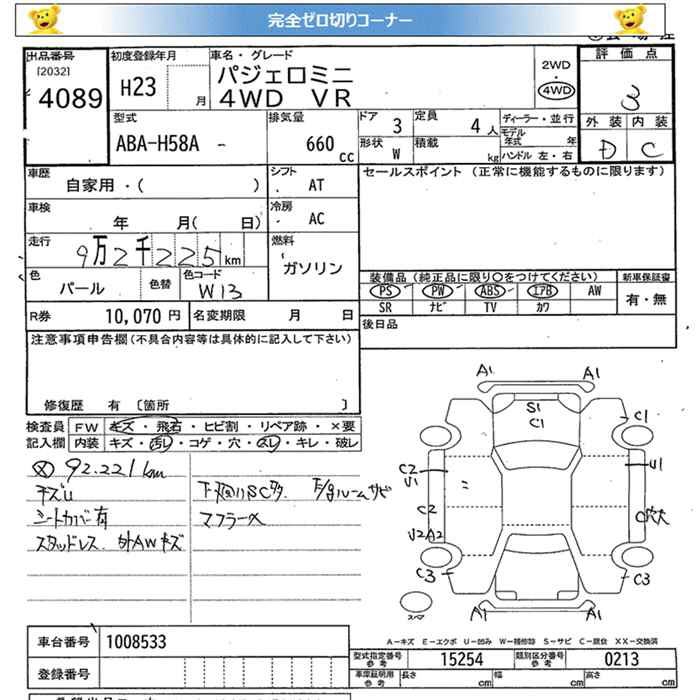 完全ゼロ切りコーナー
出品番号
[2032]
4089
初度登録年月
H23
月
車名・グレード
パジェロミニ
4WD VR
2WD
・
4WD
評価点
3
外装 内装
D C
型式
ABA-H58A -
排気量
660
cc
ドア 3
定員 4 人
形状 W
積載 kg
ディーラー・並行
モデル年式 年
ハンドル 左・右
車歴
自家用・( )
シフト
AT
車検
年 月( 日)
冷房
AC
走行
9万2千225km
燃料
ガソリン
色
パール
色替
色コード
W13
R券 10,070 円
名変期限 月 日
セールスポイント (正常に機能するものに限ります)
装備品(純正品に限り〇をつけてください)
新車保証書
PS PW ABS エアB AW
SR ナビ TV カワ
有・無
後日品
注意事項申告欄(不具合内容等は具体的に記入して下さい)
修復歴 有 〔箇所 〕
検査員
記入欄
FW キズ・飛石・ヒビ割・リペア跡・×要
内装 キズ・汚レ・コゲ・穴・スレ・キレ・破レ
92.221km
キズU
シートカバー有
スタッドレス 外AWキズ
下廻りSC多
ルームサビ
マフラー×
A1 A1
S1
C1
C1
C2
V1
U1
C2
C穴大
V2A2
C3 C3
スペア
A1 A1
A-キズ E-エクボ U-凹み W-補修跡 S-サビ C-腐食 XX-交換済
車台番号 1008533
登録番号
型式指定番号
参考
15254
類別区分番号
参考
0213
車庫証明用
参考
長さ cm
幅 cm
高さ cm